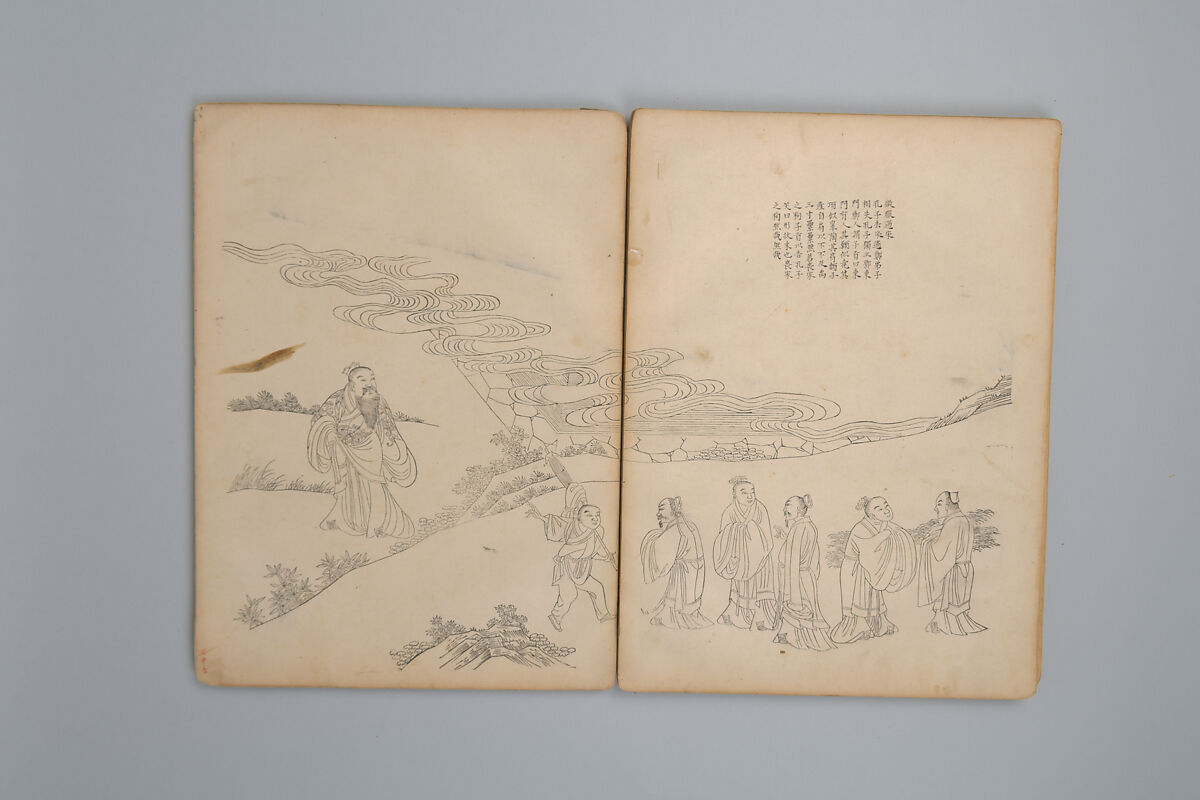 微服過宋
孔子去宋適鄭弟子
相失孔子獨立鄭東
門鄭人謂子貢曰東
門有人其顙似堯其
項似皋陶其肩類子
產自肩以下不及禹
三寸纍纍然若喪家
之狗子貢以告孔子
笑曰形狀末也喪家
之狗然哉然哉